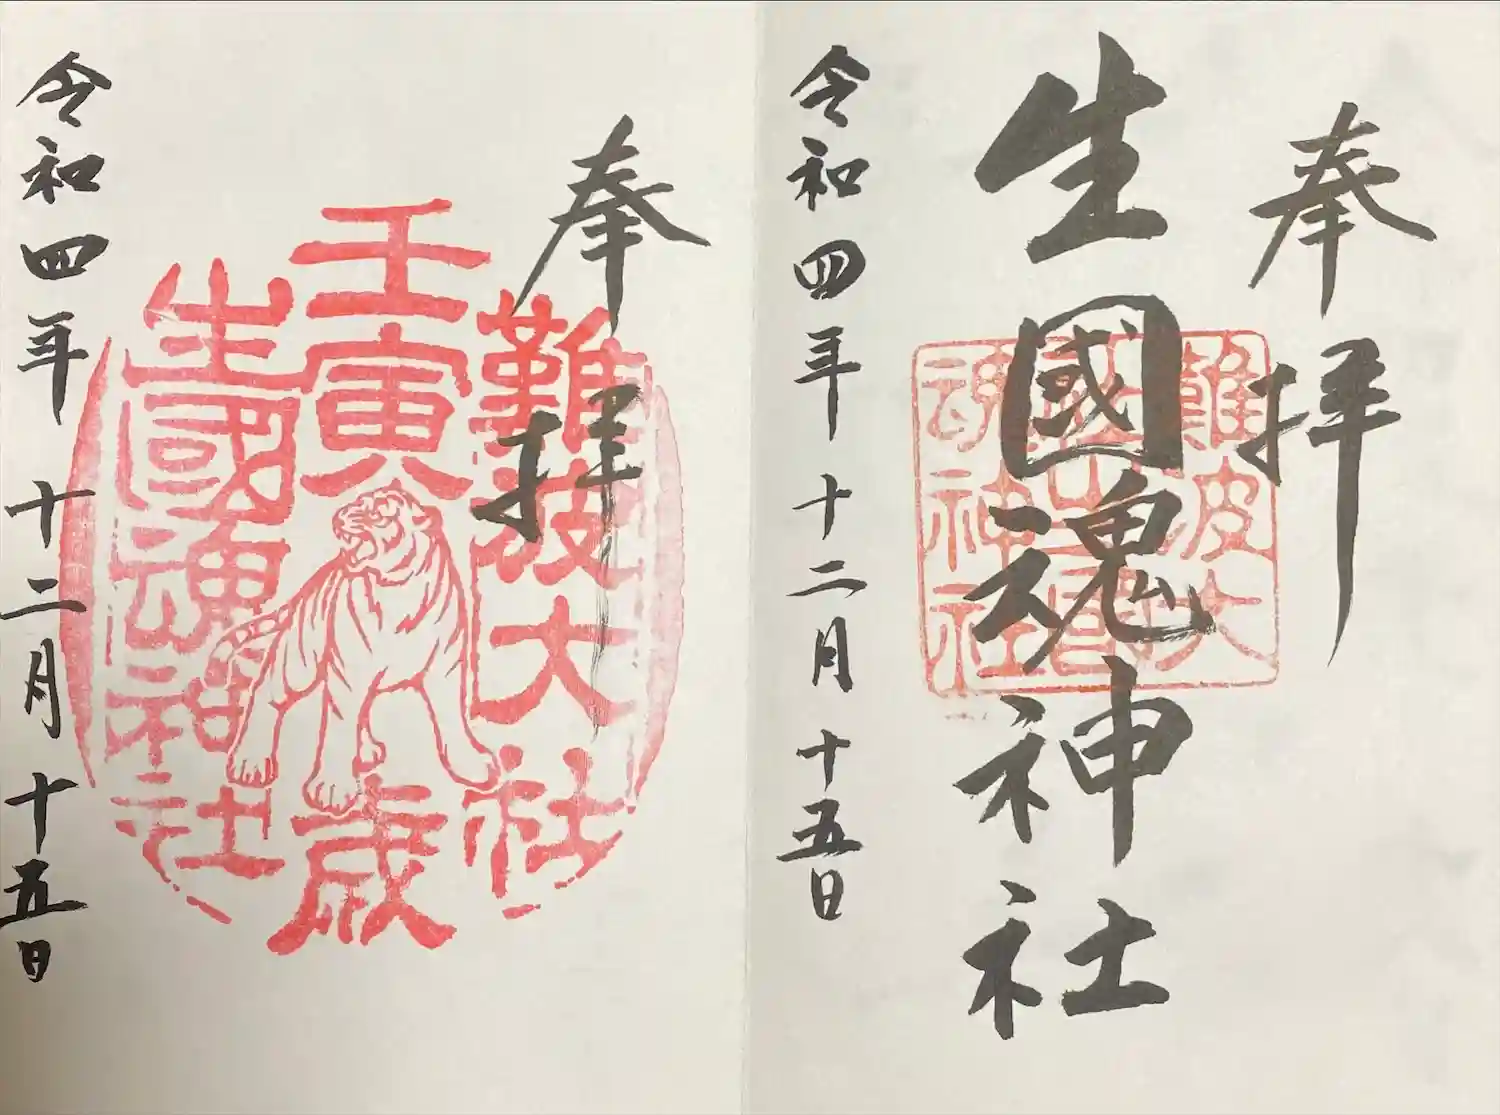 奉拝
生國魂神社
難波大
魂神社
令和四年十二月十五日
奉拝
難波大社
壬寅歳
生國魂神社
令和四年十二月十五日